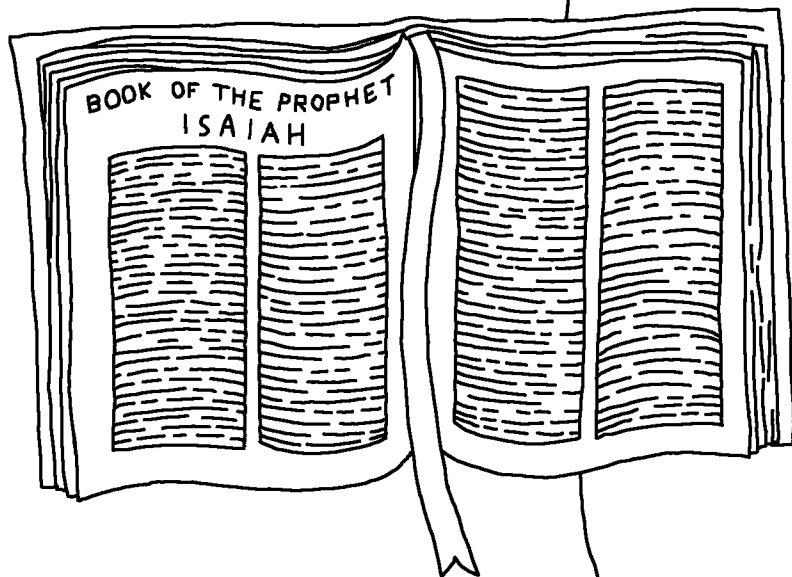 BOOK OF THE PROPHET
ISAIAH